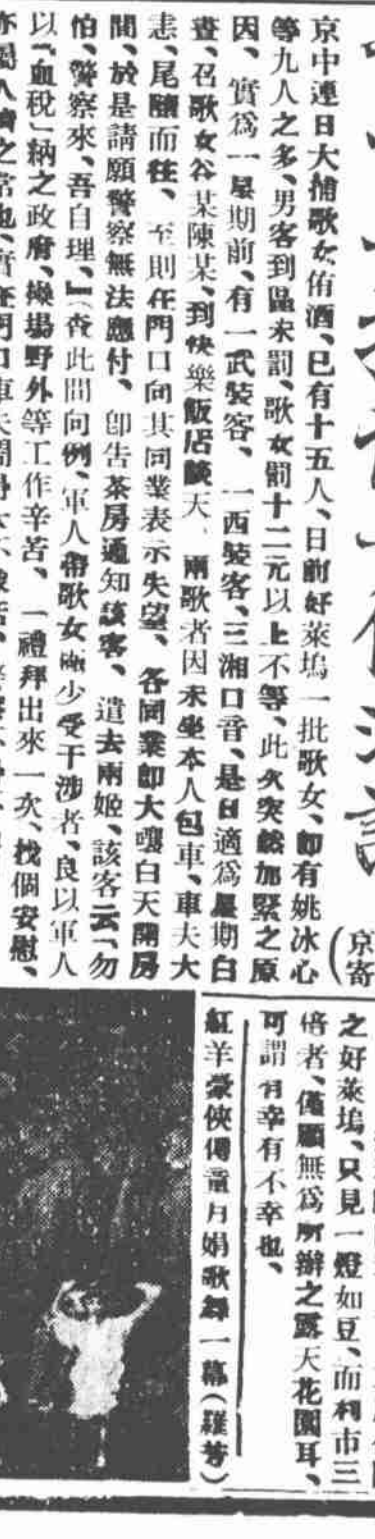 （京寄
京中連日大捕歌女侑酒、已有十五人、日前好萊塢一批歌女、卽有姚冰心
等九人之多、男客到區未罰、歌女罰十二元以上不等、此次突然加緊之原
因、實爲一星期前、有一武裝客、一西裝客、三湘口音、是日適爲星期白
晝、召歌女谷某陳某、到快樂飯店談天、兩歌者因未坐本人包車、車夫大
恚、尾隨而往、至則在門口向其同業表示失望、各同業卽大嚷白天開房
間、於是請願警察無法應付、卽告茶房通知該客、遣去兩姬、該客云「勿
怕、警察來、吾自理、」（查此間向例、軍人帶歌女極少受干涉者、良以軍人
以「血稅」納之政府、操場野外等工作辛苦、一禮拜出來一次、找個安慰、
亦屬人情之常也、
之好萊塢、只見一燈如豆、而利市三
倍者、僅願無爲所辦之露天花園耳、
可謂有幸有不幸也、
紅羊豪俠傳童月娟歌舞一幕（羅芳）